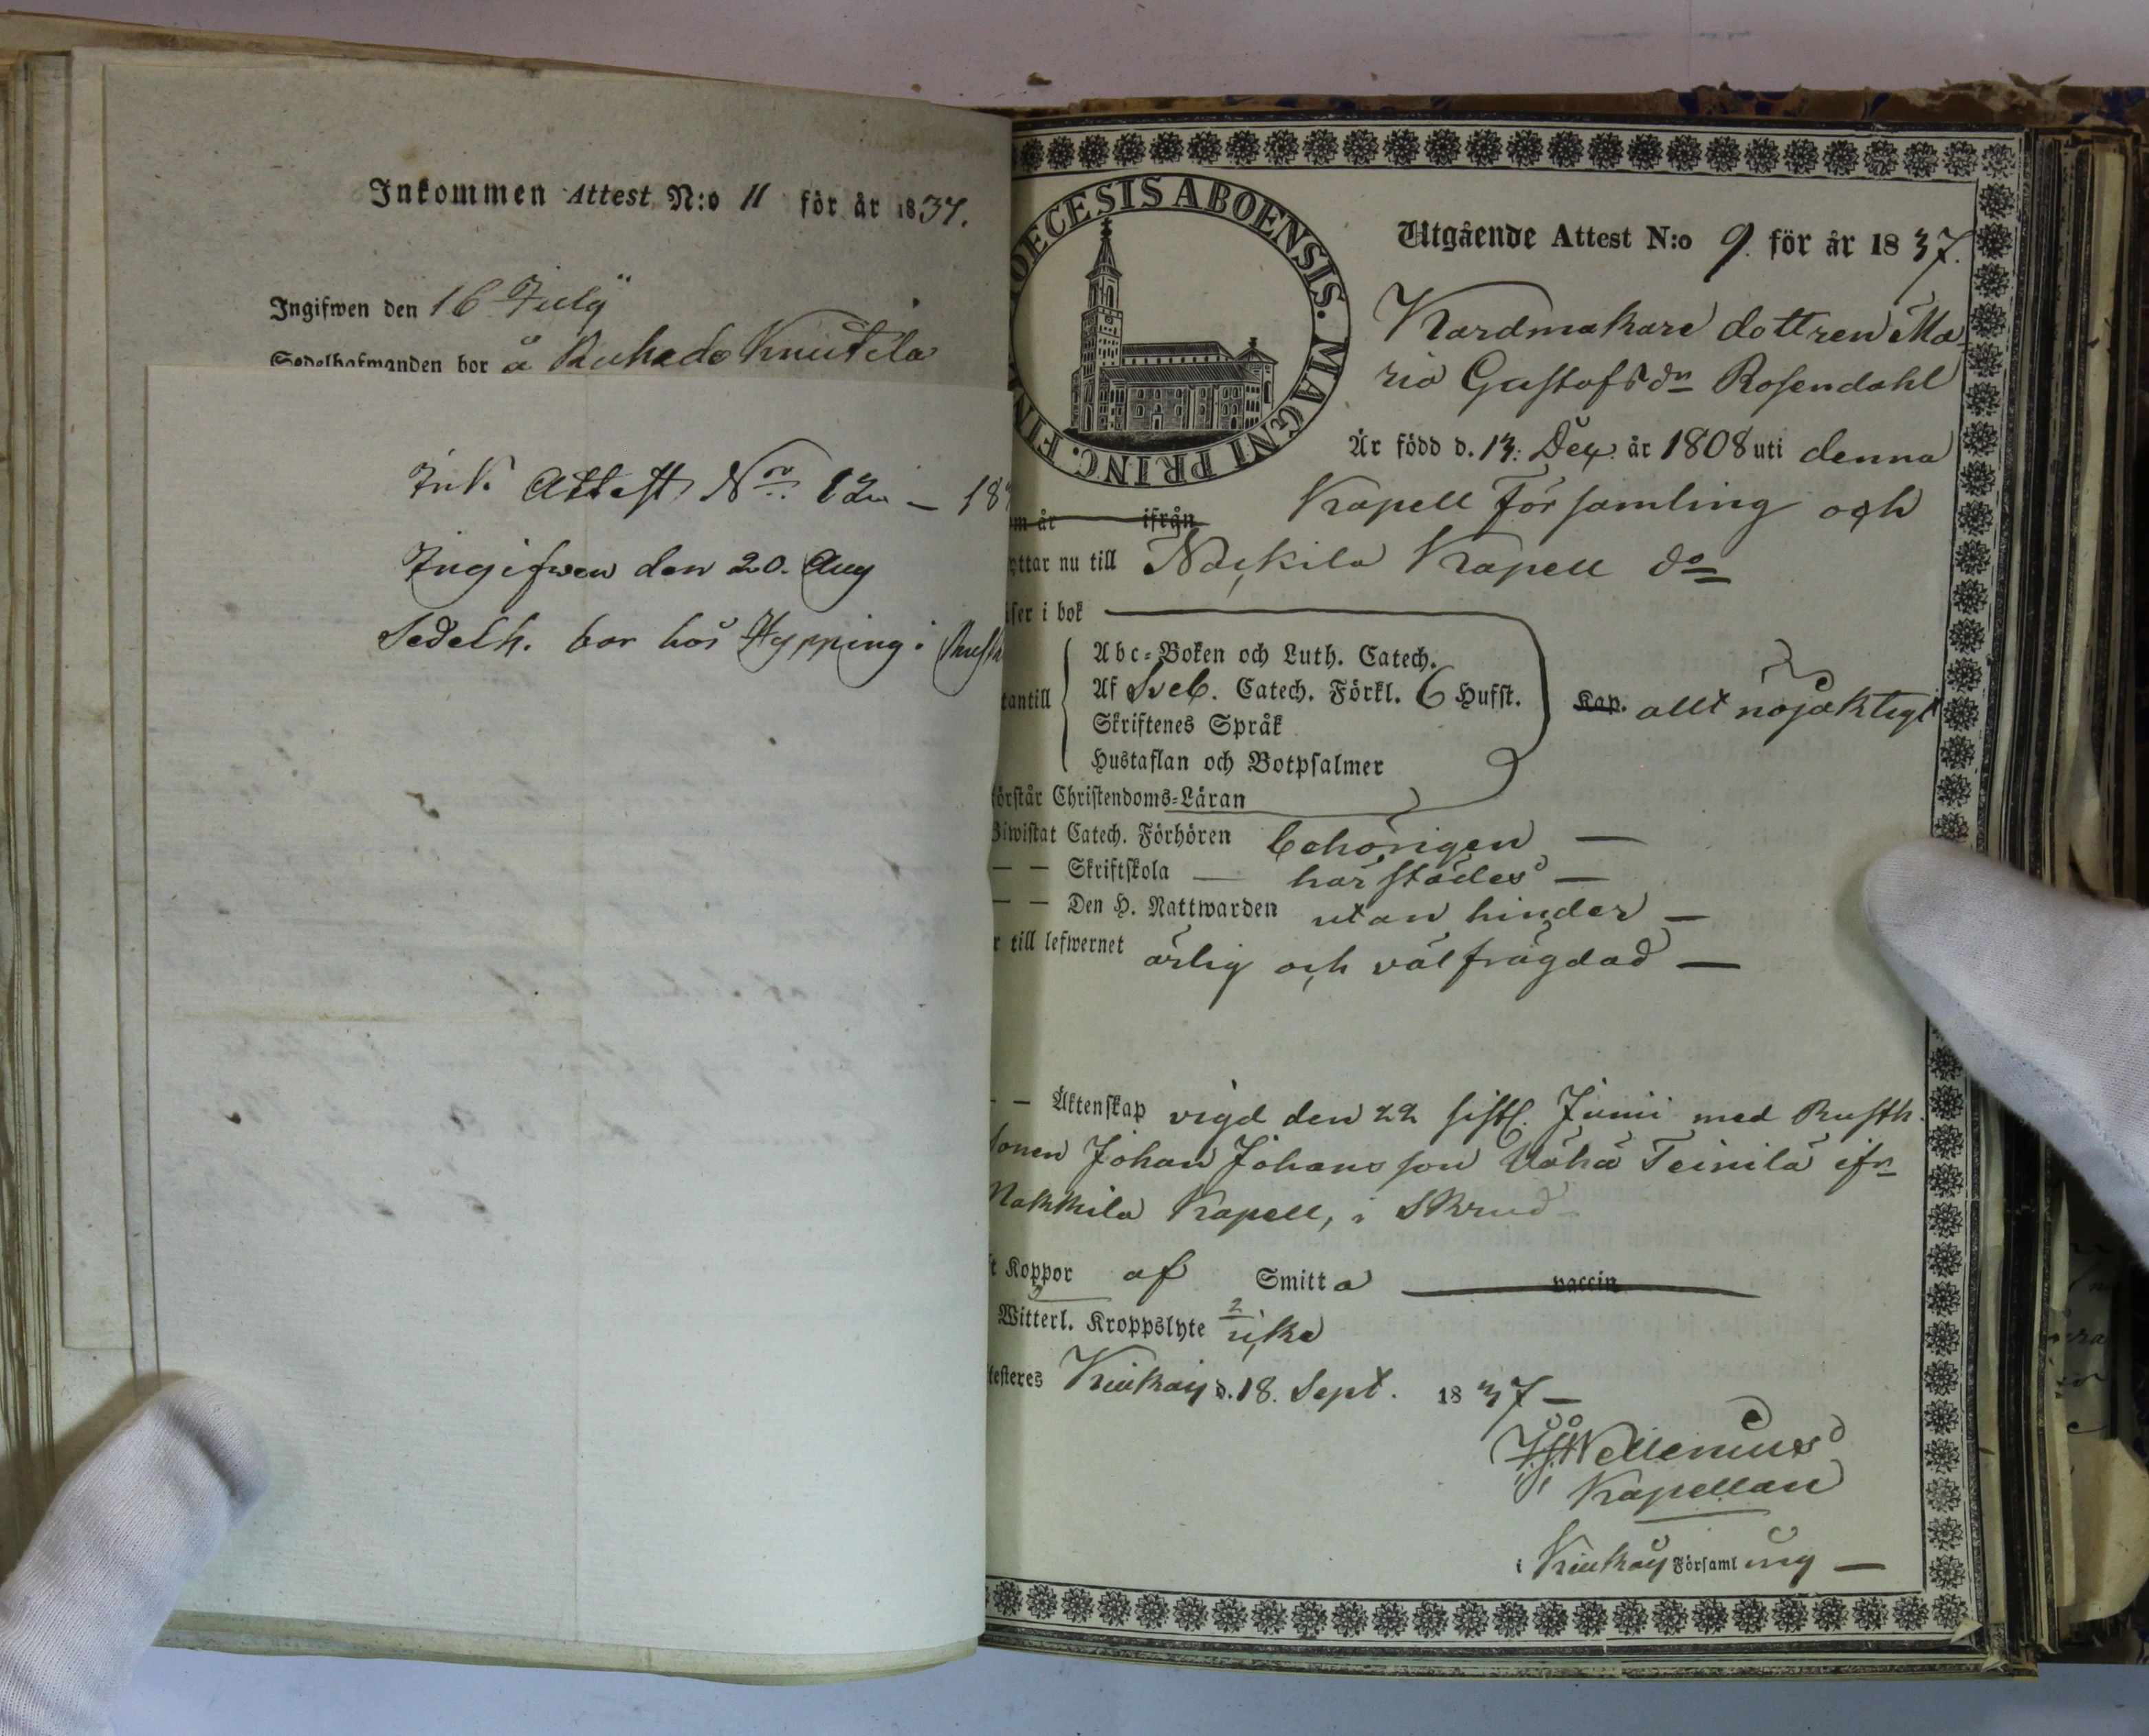 Inkommen Attest N:o 11 för år 1837.
Ingifwen den 16 July
Sedelhafwanden bor å Ruhade Knuutila
Ink. Attest N:o 12 – 18
Ingifwen den 20. Aug
Sedelh. bor hos Hypping i
DIOECESIS ABOENSIS. MAGNI PRINC. FIN
Utgående Attest N:o 9. för år 1837.
Kardmakare dottren Ma-
ria Gustafsdr Rosendahl
Är född d. 13: Dec. år 1808 uti denna
Kapell Församling och
m år ifrån
yttar nu till Nackila Kapell do
äser i bok
Abc-Boken och Luth. Catech.
tantill Af Sveb. Catech. Förkl. 6 Hufst. Kap. allt nöjaktigt
Skriftenes Språk
Hustaflan och Botpsalmer
örstår Christendoms-Läran
Biwistat Catech. Förhören behörigen —
— — Skriftskola — härstädes —
— — Den H. Nattwarden utan hinder —
r till lefwernet ärlig och välfrägdad —
— — Äktenskap vigd den 22 sistl. Junii med Rusth.
sonen Johan Johansson Vähä Teinilä ifn
Nakkila Kapell, i Skrud
t Koppor af Smitta vaccin
Witterl. Kroppslyte icke
testeres Kiukais d. 18. Sept. 1837 —
Wellenius
Kapellan
i Kiukais Församling —